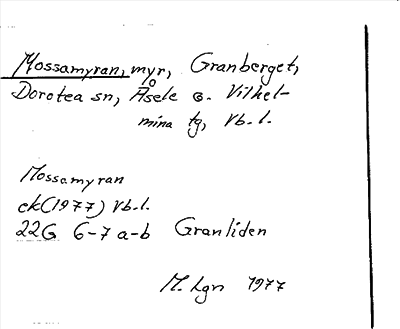 Mossamyran, myr, Granberget,
Dorotea sn, Åsele o. Vilhel-
mina tg, Vb. l.
Mossamyran
ek (1977) Vb. l.
22G 6-7 a-b Granliden
M. Lgn 1977